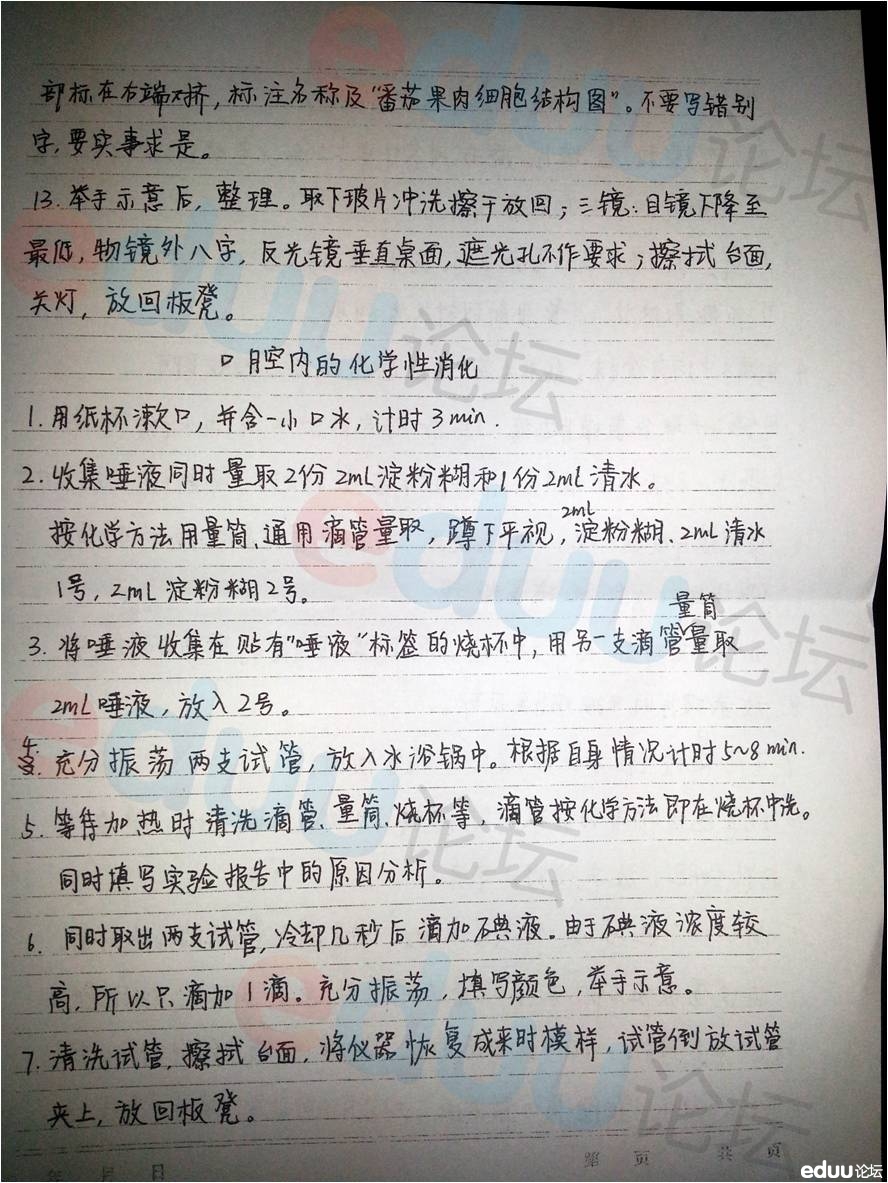 部标在右端对挤，标注名称及“番茄果肉细胞结构图”。不要写错别
字，要实事求是。
13. 举手示意后，整理。取下玻片冲洗擦干放回；三镜：目镜下降至
最低，物镜外八字，反光镜垂直桌面，遮光孔不作要求；擦拭台面，
关灯，放回板凳。
口腔内的化学性消化
1. 用纸杯漱口，并含一小口水，计时3min.
2. 收集唾液同时量取2份2mL淀粉糊和1份2mL清水。
按化学方法用量筒、通用滴管量取，蹲下平视，2mL淀粉糊、2mL清水
1号，2mL淀粉糊2号。
3. 将唾液收集在贴有“唾液”标签的烧杯中，用另一支滴管量筒量取
2mL唾液，放入2号。
4. 充分振荡两支试管，放入水浴锅中。根据自身情况计时5~8min.
5. 等待加热时清洗滴管、量筒、烧杯等，滴管按化学方法即在烧杯中洗。
同时填写实验报告中的原因分析。
6. 同时取出两支试管，冷却几秒后滴加碘液。由于碘液浓度较
高，所以只滴加1滴。充分振荡，填写颜色，举手示意。
7. 清洗试管，擦拭台面，将仪器恢复成来时模样，试管倒放试管
夹上，放回板凳。
年 月 日 第 页 共 页
eduu论坛
eduu论坛